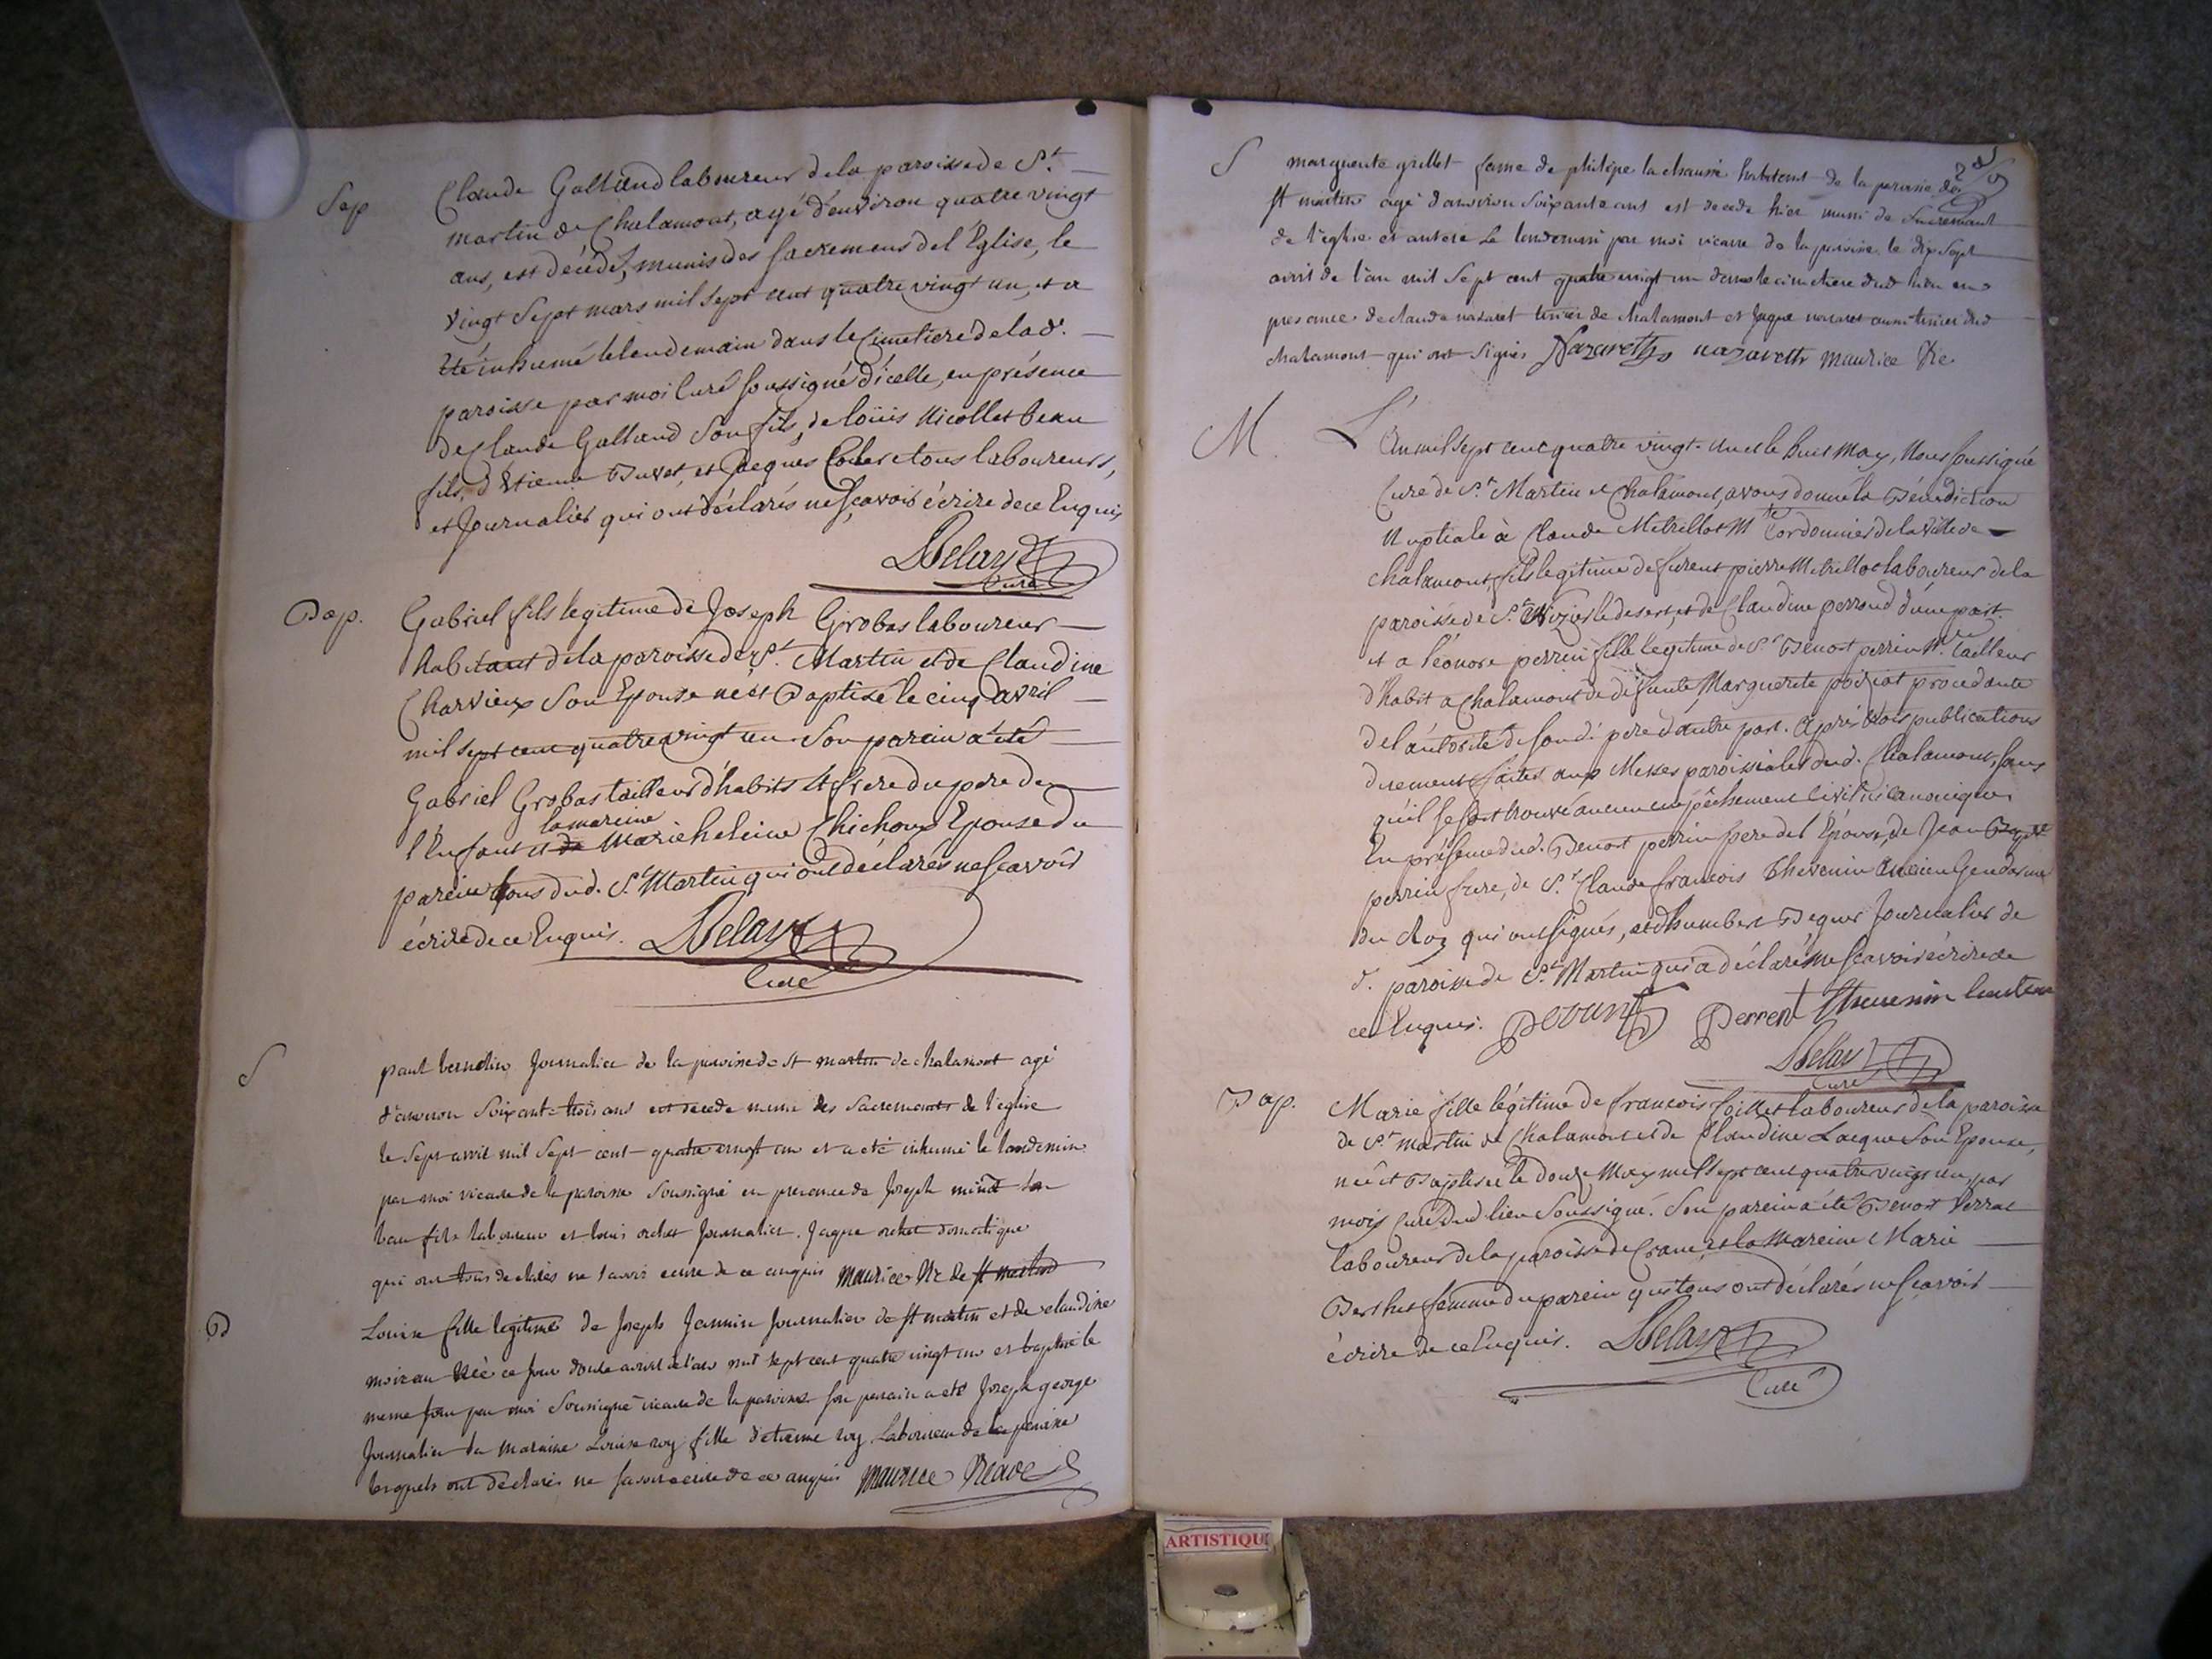 Sep
Claude Galland laboureur de la paroisse de St.
martin de Chalamont, agé d'environ quatre vingt
ans, est décédé, munis des sacremens de l'Église, le
vingt sept mars mil sept cent quatre vingt un, et a
été inhumé le lendemain dans le Cimetiere de la d.
paroisse par moi Curé soussigné d'icelle, en présence
de Claude Galland son fils, de loüis Nicollet beau
fils, d'Etienne et Jacques tous laboureurs,
et Journalier qui ont déclarés ne sçavoir écrire de ce Enquis
Delay
Curé
Bap.
Gabriel fils legitime de Joseph Grobas laboureur
habitant de la paroisse de St. Martin et de Claudine
Charvieux son Epouse né et Baptisé le cinq avril
mil sept cent quatre vingt un son parein a été
Gabriel Grobas tailleur d'habits et frere du pere de
la mareine
l'Enfant et de Marie heleine Chichoux Epouse du
parein tous dud. St. Martin qui ont déclarés ne scavoir
écrire de ce Enquis. Delay
Curé
S
paul bernolin Journalier de la paroisse de st martin de chalamont agé
d'anviron soixante trois ans est decede muni des sacrements de l'eglise
le sept avril mil sept cent quatre vingt un et a eté inhumé le landemin
par moi vicaire de la paroisse soussigné en presance de Joseph son
beau fils laboureur et louis ochet Journalier. Jaque ochet domestique
qui ont tous declarés ne savoir ecrire de ce anquis maurice vic de st martin
B
Louise fille legitime de Joseph Jannin Journalier de st martin et de claudine
moiran née ce jour douze avril de l'an mil sept cent quatre vingt un et baptisé le
meme jour par moi soussigné vicaire de la paroisse son parain a eté Joseph george
Journalier la maraine Louise roy fille d'etienne roy Laboureur de la paroisse
lesquels ont declarés ne savoir ecrire de ce anquis maurice vicaire
S
marguerite grillet fame de philipe la chaume habitant de la paroisse de
st martin agé d'anviron soixante ans est decede hier muni de sacremant
de l'eglise et anteré le landemin par moi vicaire de la paroisse le dix sept
avril de l'an mil sept cent quatre vingt un dans le cimetiere dud lieu en
presance de claude nazaret de chalamont et Jaque nazaret aussi dud
chalamont qui ont signés Nazareth nazareth maurice vic
M.
L'An mil sept cent quatre vingt-un et le huit May, Nous soussigné
Curé de St. Martin et Chalamont, avons donné la Bénédiction
Nuptiale à Claude Metrillot Mtre Cordonnier de la Ville de
Chalamont, fils legitime de furent pierre Metrillot laboureur de la
paroisse de St. Nizier le desert, et de Claudine perroud d'une part.
et a léonore perrin fille legitime de Sr. Benoit perrin Mtre. Tailleur
d'habit a Chalamont de défunte Marguerite poiziat procédante
de l'autorité de son d. pere d'autre part. Après trois publications
duement faites aux Messes paroissiales dud. Chalamont, sans
qu'il se soit trouvé aucun empêchement civil ni canonique.
En présence dud. Benoit perrin pere de l'Epouse, de Jean Bapte
perrin frere, de Sr. Claude francois Thevenin Ancien Gendarme
du Roy qui ont signés, et d'humbert Journalier de
d. paroisse de St. Martin qui a déclaré ne scavoir écrire de
ce Enquis. perrin Perrin Thevenin
Delay
Curé
Bap.
Marie fille légitime de francois laboureur de la paroisse
de St. martin de Chalamont et de Claudine Lacque son Epouse,
née et Baptisée le douze May mil sept cent quatre vingt un, par
mois Curé dud lieu soussigné. Son parein a été Benoit Verrat
laboureur de la paroisse de Crans et la mareine Marie
Berthet femme du parein qui tous ont déclarés ne scavoir
écrire de ce Enquis. Delay
Curé
ARTISTIQU